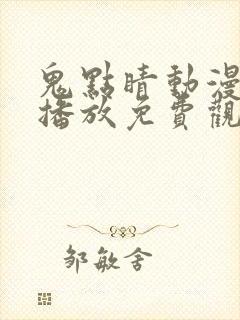 鬼點睛動漫
播放免費觀
邹敏舍